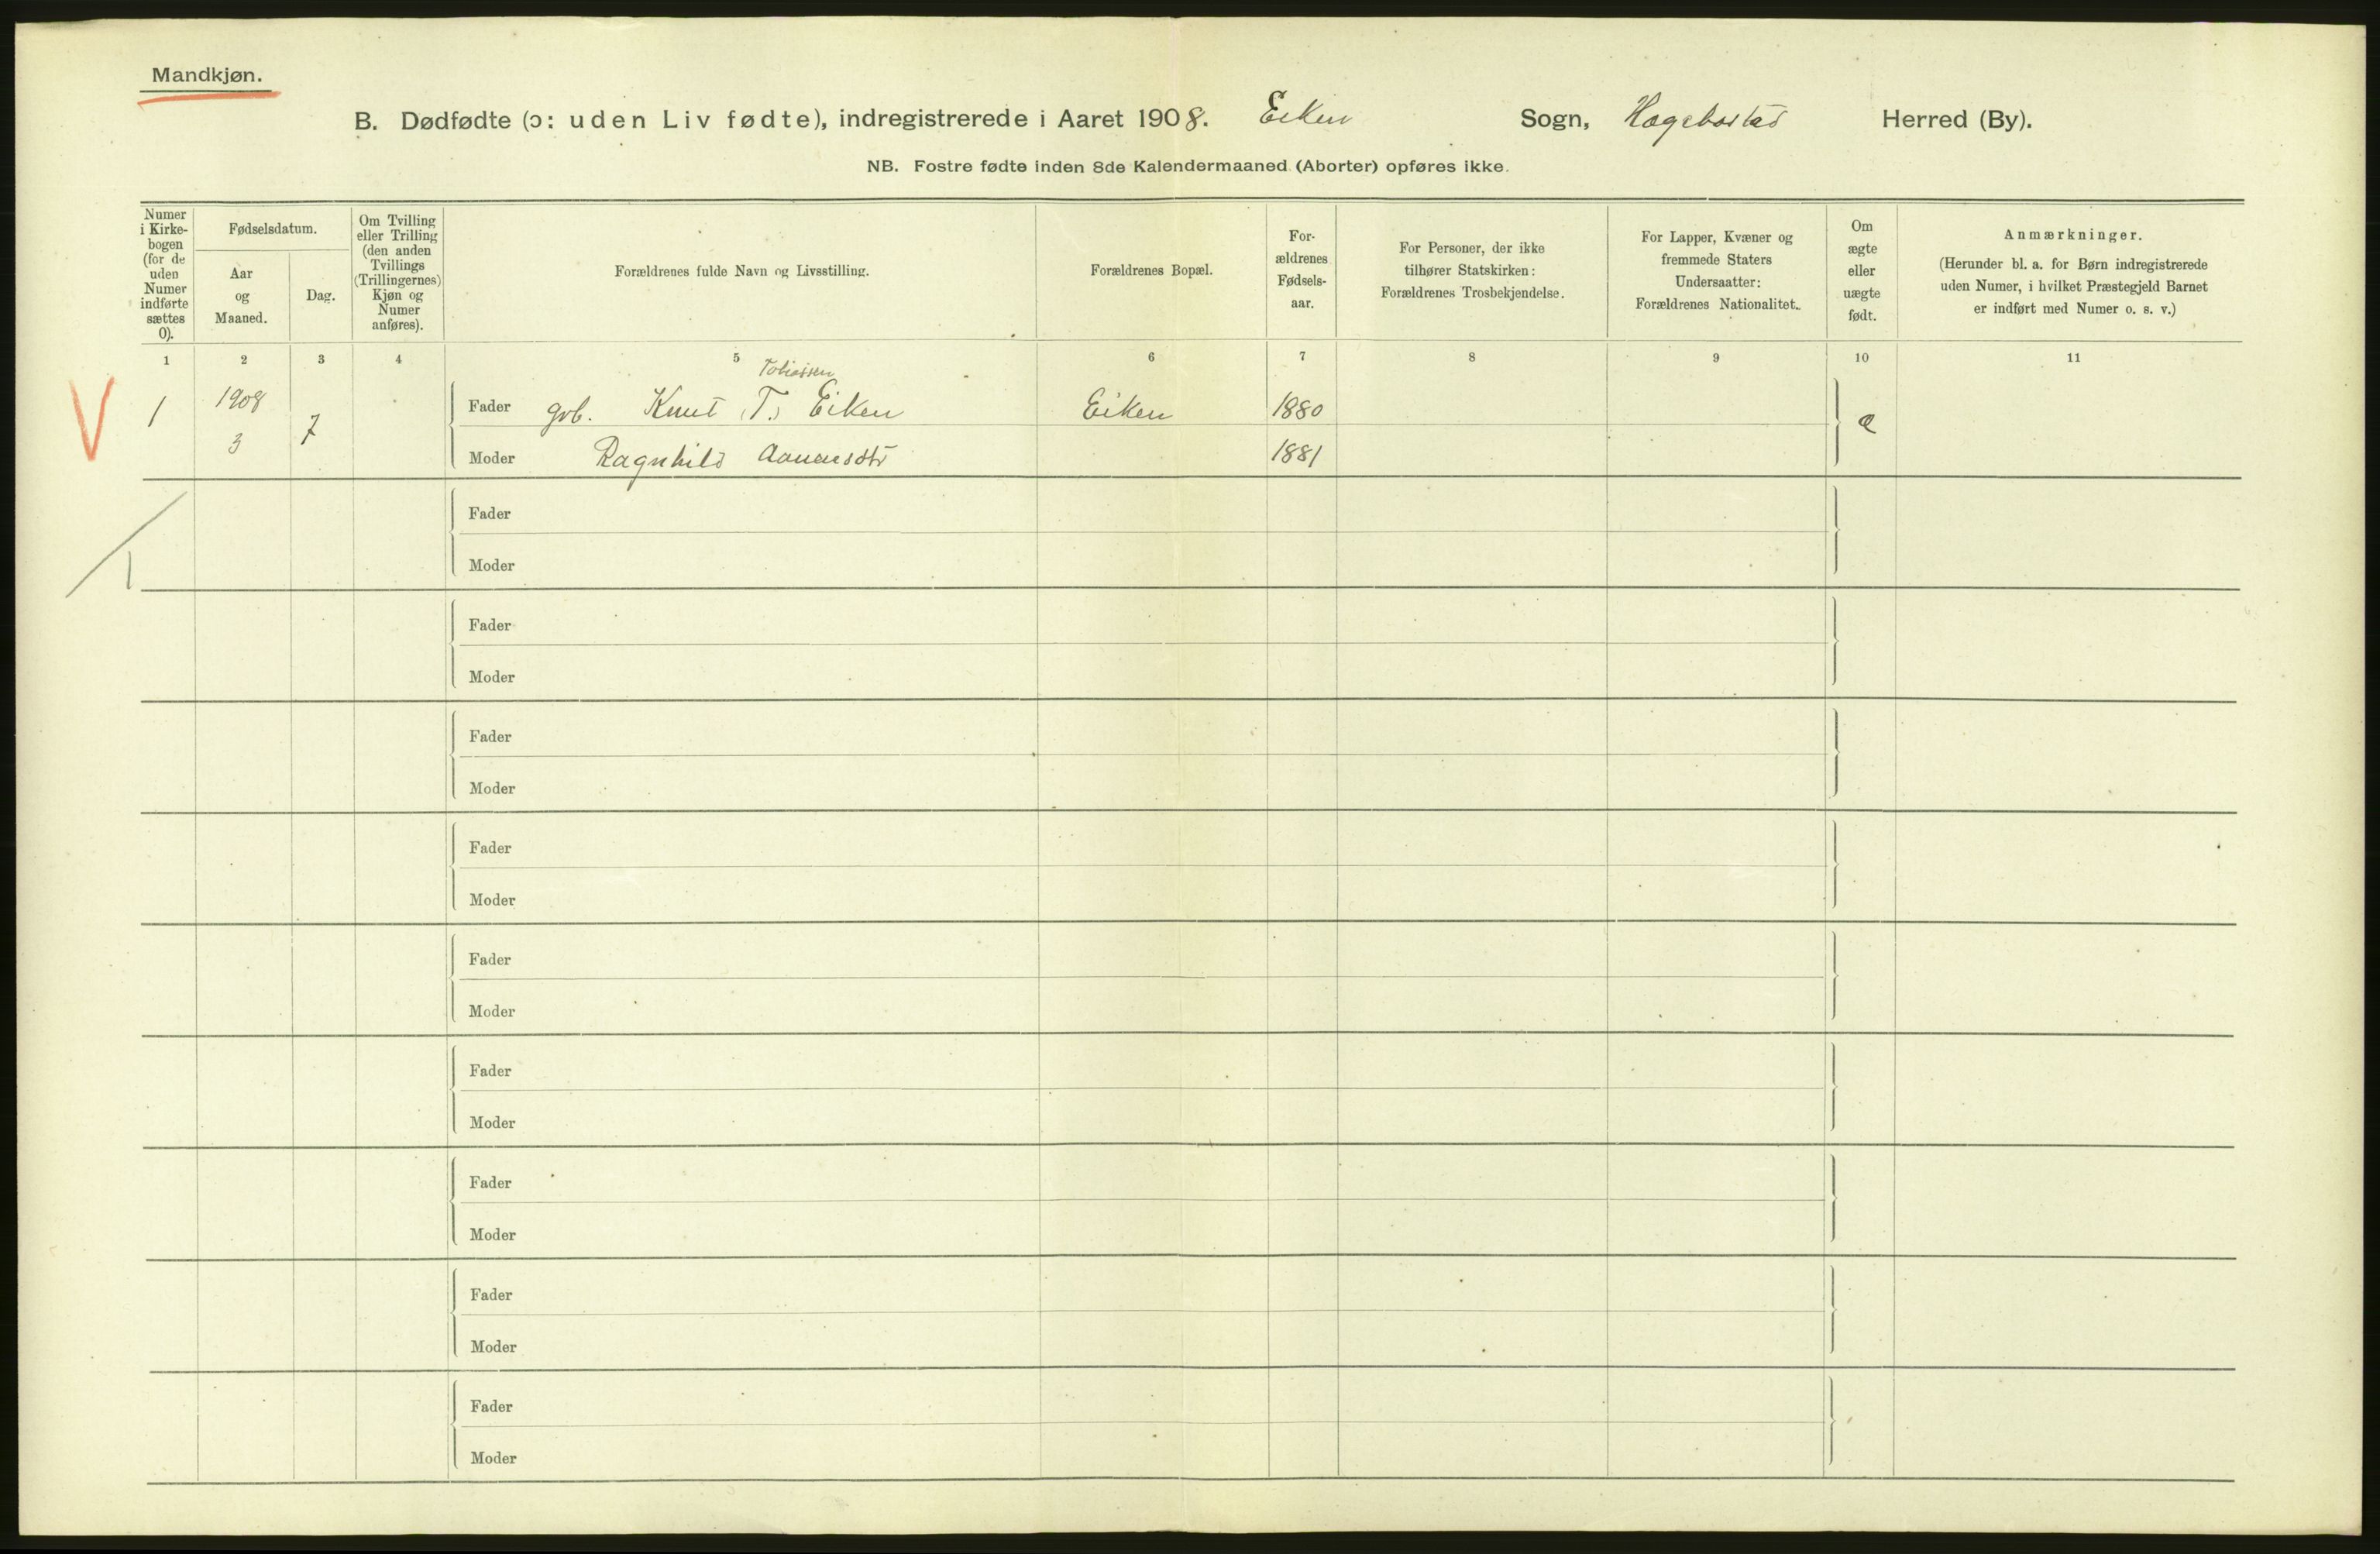 Mandkjøn.
B. Dødfødte (ɔ: uden Liv fødte), indregistrerede i Aaret 1908. Eiken Sogn, Hægebostad Herred (By).
NB. Fostre fødte inden 8de Kalendermaaned (Aborter) opføres ikke.
Numer
i Kirke-
bogen
(for de
uden
Numer
indførte
sættes
0).
Fødselsdatum.
Aar
og
Maaned.
Dag.
Om Tvilling
eller Trilling
(den anden
Tvillings
(Trillingernes)
Kjøn og
Numer
anføres).
Forældrenes fulde Navn og Livsstilling.
Forældrenes Bopæl.
For-
ældrenes
Fødsels-
aar.
For Personer, der ikke
tilhører Statskirken:
Forældrenes Trosbekjendelse.
For Lapper, Kvæner og
fremmede Staters
Undersaatter:
Forældrenes Nationalitet.
Om
ægte
eller
uægte
født.
Anmærkninger.
(Herunder bl. a. for Børn indregistrerede
uden Numer, i hvilket Præstegjeld Barnet
er indført med Numer o. s. v.)
1 2 3 4 5 6 7 8 9 10 11
V
1
1908
3
7
Tobiassen
Fader grb. Knut (T.) Eiken Eiken 1880
Moder Ragnhild Aanensdtr 1881
Fader
Moder
1
Fader
Moder
Fader
Moder
Fader
Moder
Fader
Moder
Fader
Moder
Fader
Moder
Fader
Moder
Fader
Moder